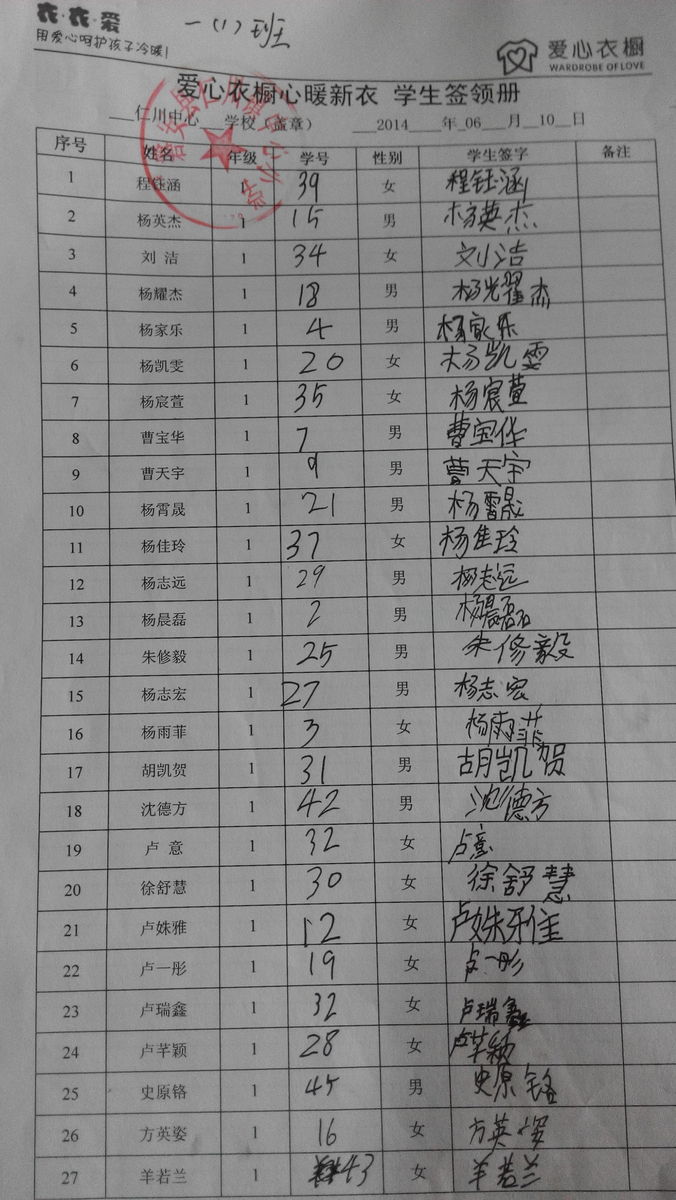 衣·衣·爱
用爱心呵护孩子冷暖!
一(1)班
爱心衣橱
WARDROBE OF LOVE
爱心衣橱心暖新衣 学生签领册
仁川中心 学校（盖章） 2014 年 06 月 10 日
序号 姓名 年级 学号 性别 学生签字 备注
1 程钰涵 1 39 女 程钰涵
2 杨英杰 1 15 男 杨英杰
3 刘 洁 1 34 女 刘洁
4 杨耀杰 1 18 男 杨耀杰
5 杨家乐 1 4 男 杨家乐
6 杨凯雯 1 20 女 杨凯雯
7 杨宸萱 1 35 女 杨宸萱
8 曹宝华 1 7 男 曹宝华
9 曹天宇 1 9 男 曹天宇
10 杨霄晟 1 21 男 杨霄晟
11 杨佳玲 1 37 女 杨佳玲
12 杨志远 1 29 男 杨志远
13 杨晨磊 1 2 男 杨晨磊
14 朱修毅 1 25 男 朱修毅
15 杨志宏 1 27 男 杨志宏
16 杨雨菲 1 3 女 杨雨菲
17 胡凯贺 1 31 男 胡凯贺
18 沈德方 1 42 男 沈德方
19 卢 意 1 32 女 卢意
20 徐舒慧 1 30 女 徐舒慧
21 卢姝雅 1 12 女 卢姝雅
22 卢一彤 1 19 女 卢一彤
23 卢瑞鑫 1 32 女 卢瑞鑫
24 卢芊颖 1 28 女 卢芊颖
25 史原铬 1 45 男 史原铬
26 方英姿 1 16 女 方英姿
27 羊若兰 1 43 女 羊若兰